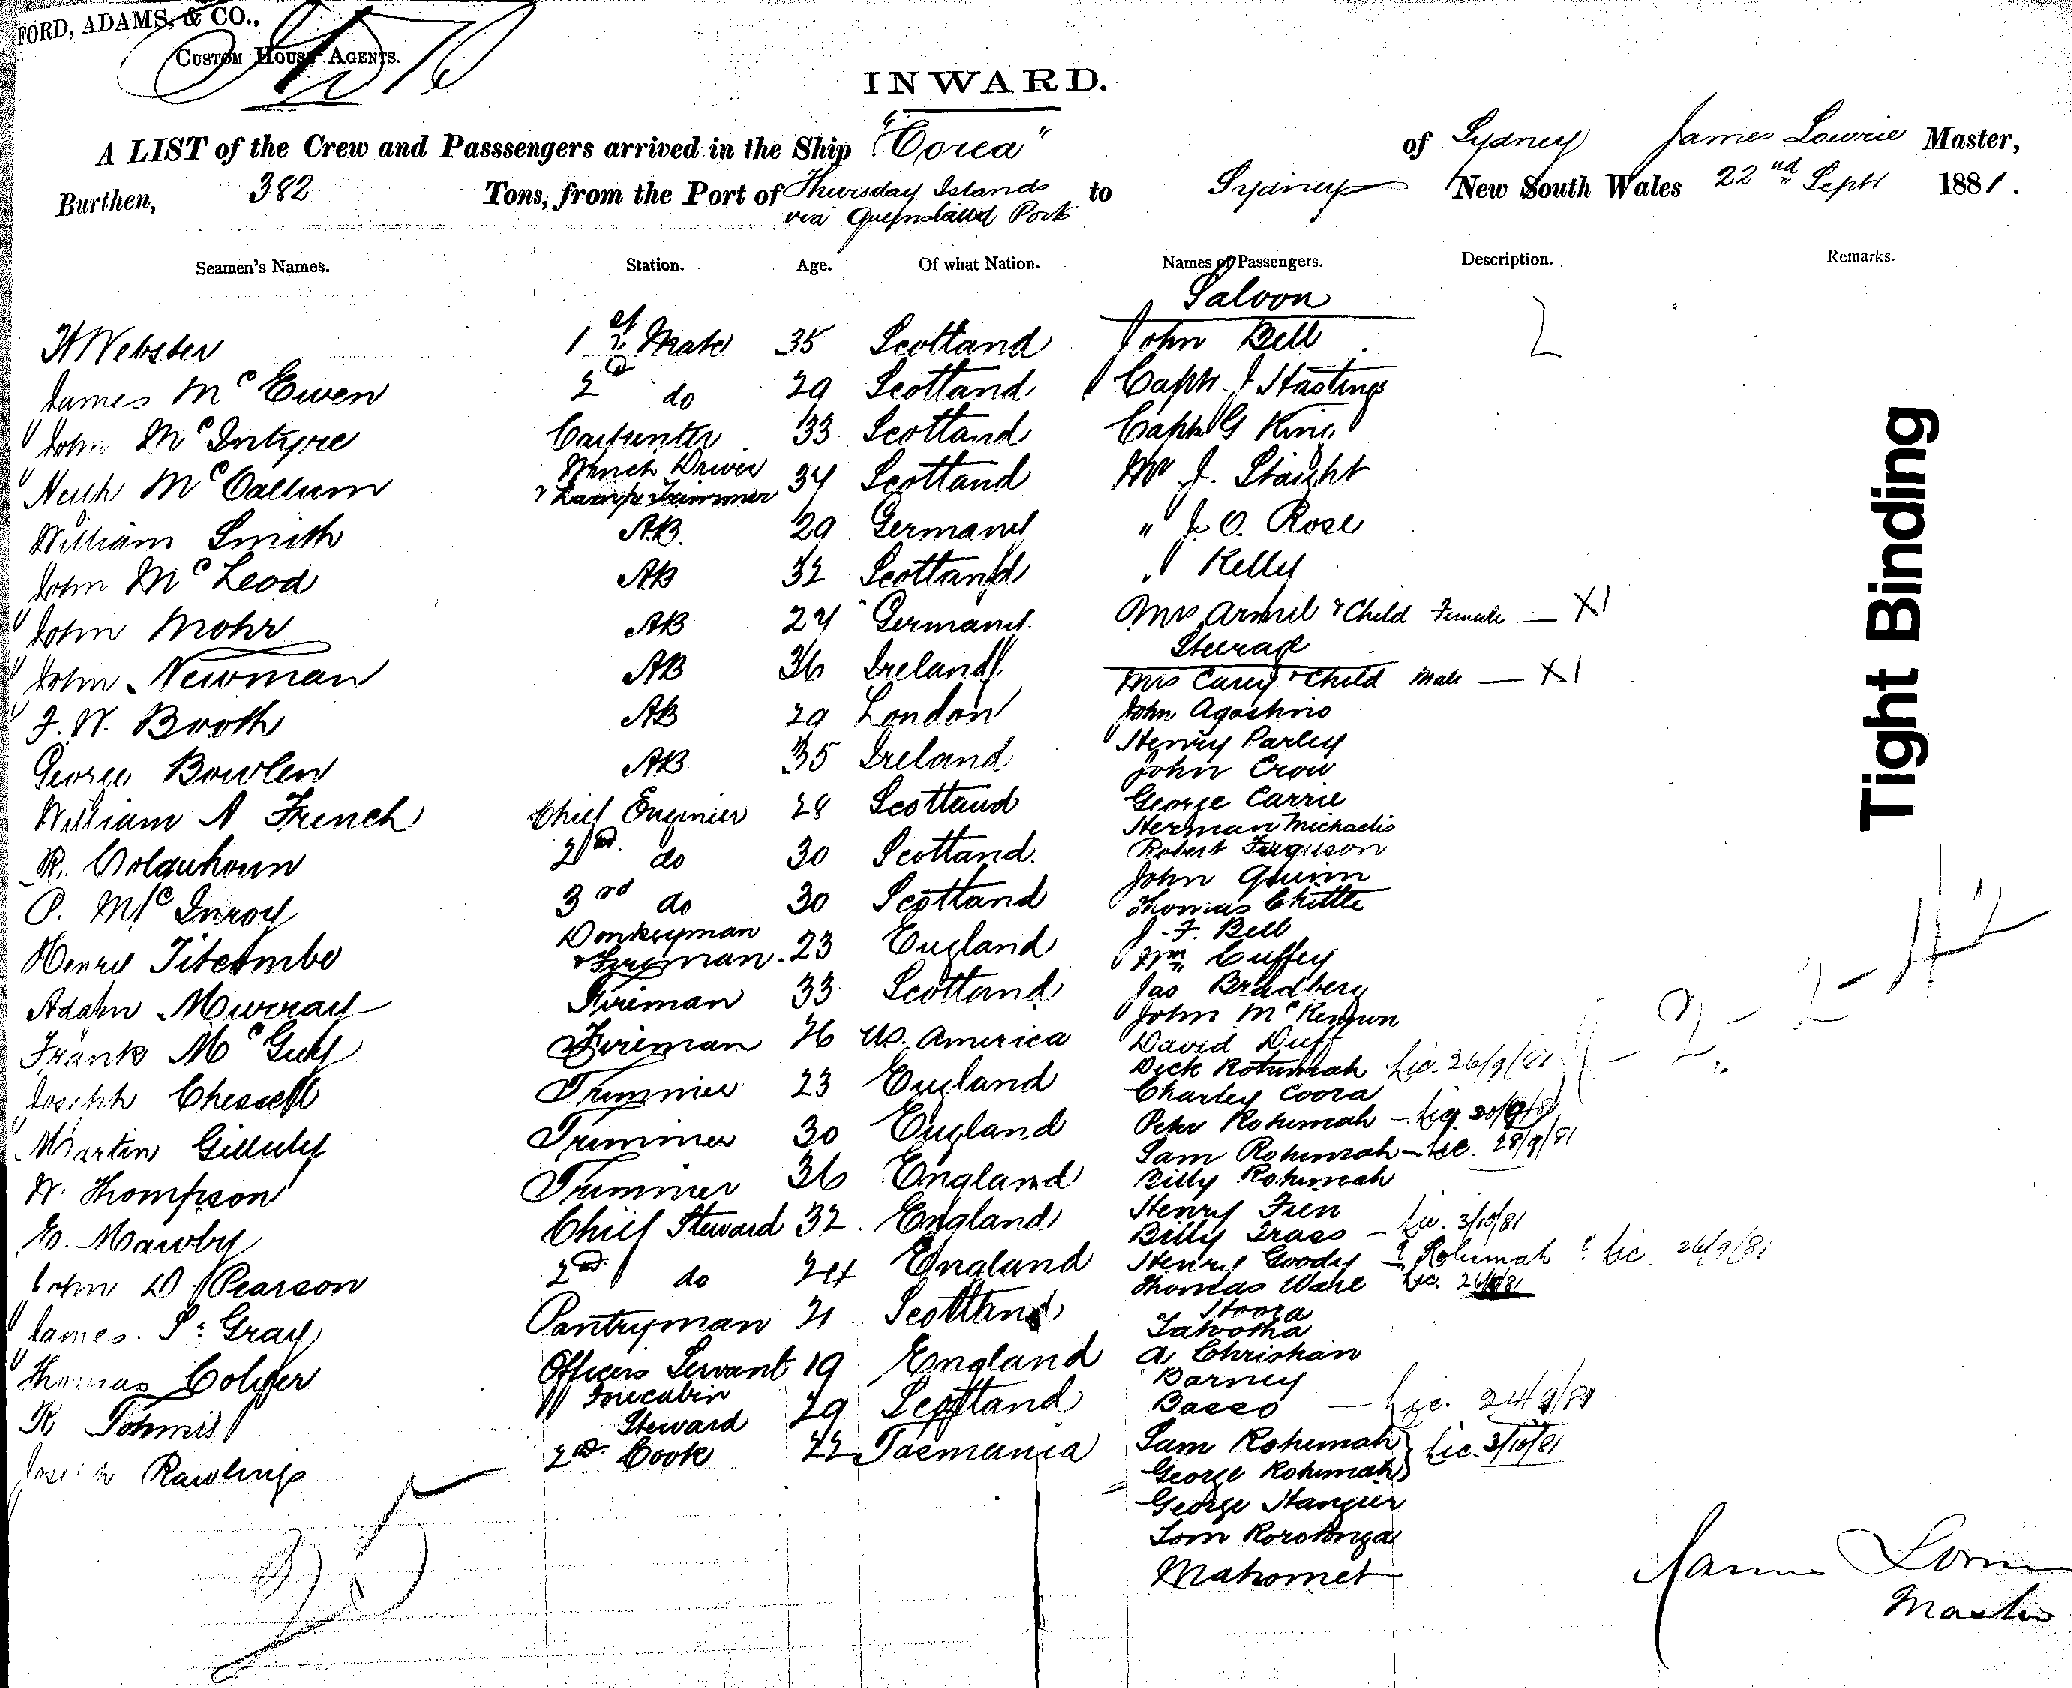 FORD, ADAMS, & CO.,
CUSTOM HOUSE AGENTS.
INWARD.
A LIST of the Crew and Passsengers arrived in the Ship "Corea" of Sydney James Lowrie Master,
Burthen, 382 Tons, from the Port of Thursday Islands via Queensland Ports to Sydney New South Wales 22nd Sept 1881.
Seamen's Names. Station. Age. Of what Nation. Names of Passengers. Description. Remarks.
Saloon
H Webster 1st Mate 35 Scotland John Bell
James McEwen 2d do 29 Scotland Capt. J Hastings
John McIntyre Carpenter 33 Scotland Capt G King
Hugh McCallum Winch Driver & Lamp Trimmer 34 Scotland Mr J. Staight
William Smith AB. 29 Germany " J. O. Rose
John McLeod AB 32 Scotland " Kelly
John Mohr AB 24 Germany Mrs Armil & Child Female — X1
Steerage
John Newman AB 36 Ireland Mrs Carey & Child Male — X1
F. W. Booth AB 29 London John Agostino
Henry Parley
George Bowlen AB 35 Ireland John Crow
William A French Chief Engineer 28 Scotland George Carrie
Herman Michaelis
R. Colquhoun 2nd do 30 Scotland Robert Ferguson
John Quinn
P. McInroy 3rd do 30 Scotland Thomas Chittle
J. F. Bell
Henry Titcombe Donkeyman & Fireman 23 England Wm Cuffey
Adam Murray Fireman 33 Scotland Jas Bradberg
John McKeown
Frank McGuy Fireman 26 US. America David Duff
Dick Rotumah Lic. 26/9/81
Joseph Chessell Trimmer 23 England Charley Coora
Peter Rohumah — Lic.
Martin Gilluly Trimmer 30 England Sam Rohumah — Lic. 28/9/81
W. Thompson Trimmer 36 England Billy Rohumah
Henry Fren
E. Mawby Chief Steward 32 England Billy Frass — Lic. 3/10/81
John D Pearson 2nd do 24 England Henry Goody — ? Rohumah ? Lic 26/9/81
Thomas Ware Lic.
James S. Gray Pantryman 21 Scotland Hoora
Tatootha
Thomas Colyer Officers Servant 19 England A Christian
Barney
R Tohmis Forecabin Steward 29 Scotland Basso — Lic. 24/9/81
Joseph Rawlings 2nd Cook 22 Tasmania Sam Rohumah Lic. 3/10/81
George Rohumah
George Hanger
Tom Rorotonga
Mahomet
25
James Lowrie
Master
Tight Binding